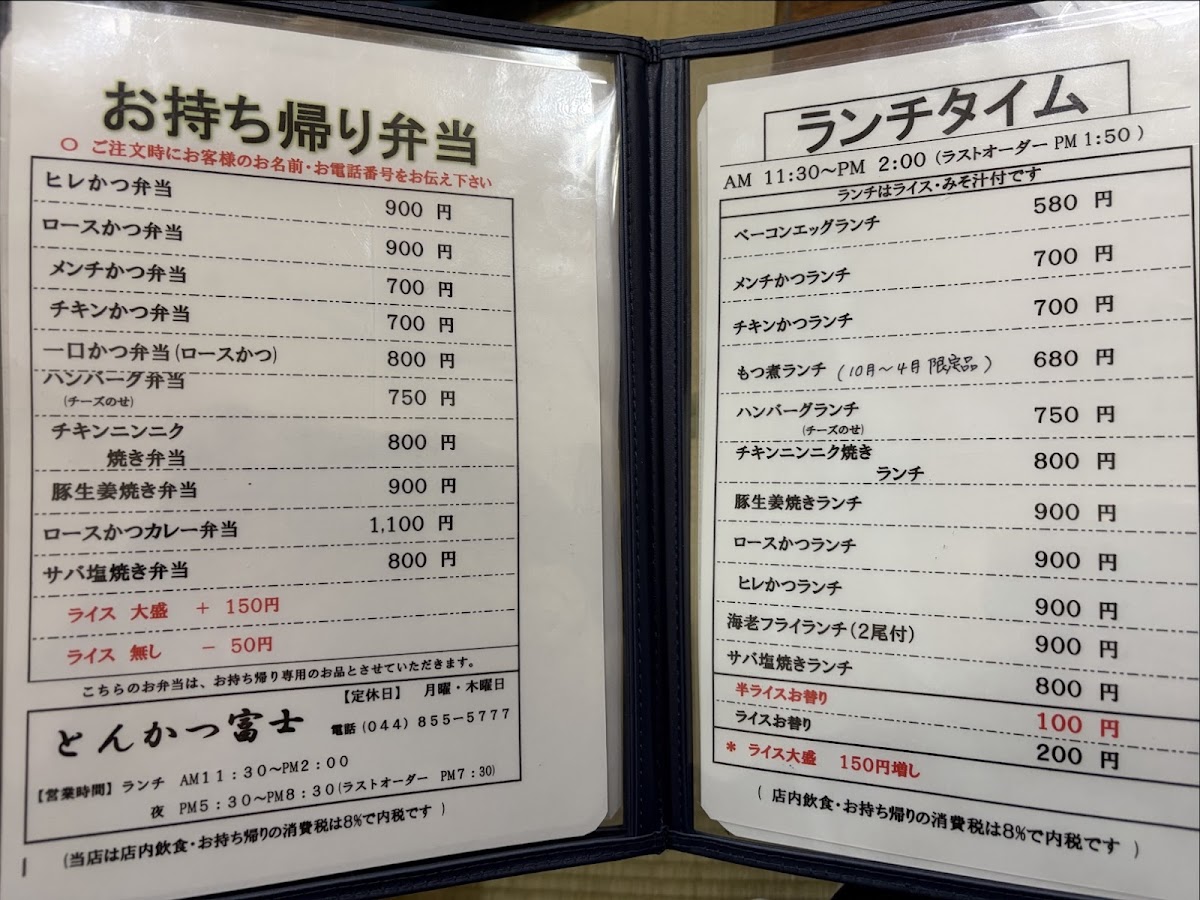 お持ち帰り弁当
○ ご注文時にお客様のお名前・お電話番号をお伝え下さい
ヒレかつ弁当 900 円
ロースかつ弁当 900 円
メンチかつ弁当 700 円
チキンかつ弁当 700 円
一口かつ弁当(ロースかつ) 800 円
ハンバーグ弁当 750 円
(チーズのせ)
チキンニンニク
焼き弁当 800 円
豚生姜焼き弁当 900 円
ロースかつカレー弁当 1,100 円
サバ塩焼き弁当 800 円
ライス 大盛 + 150円
ライス 無し − 50円
こちらのお弁当は、お持ち帰り専用のお品とさせていただきます。
【定休日】 月曜・木曜日
とんかつ富士 電話(044)855−5777
【営業時間】ランチ AM11:30~PM2:00
夜 PM5:30~PM8:30(ラストオーダー PM7:30)
(当店は店内飲食・お持ち帰りの消費税は8%で内税です )
ランチタイム
AM 11:30~PM 2:00 (ラストオーダー PM 1:50 )
ランチはライス・みそ汁付です
ベーコンエッグランチ 580 円
メンチかつランチ 700 円
チキンかつランチ 700 円
もつ煮ランチ (10月~4月 限定品) 680 円
ハンバーグランチ 750 円
(チーズのせ)
チキンニンニク焼き
ランチ 800 円
豚生姜焼きランチ 900 円
ロースかつランチ 900 円
ヒレかつランチ 900 円
海老フライランチ(2尾付) 900 円
サバ塩焼きランチ 800 円
半ライスお替り 100 円
ライスお替り 200 円
* ライス大盛 150円増し
( 店内飲食・お持ち帰りの消費税は8%で内税です )